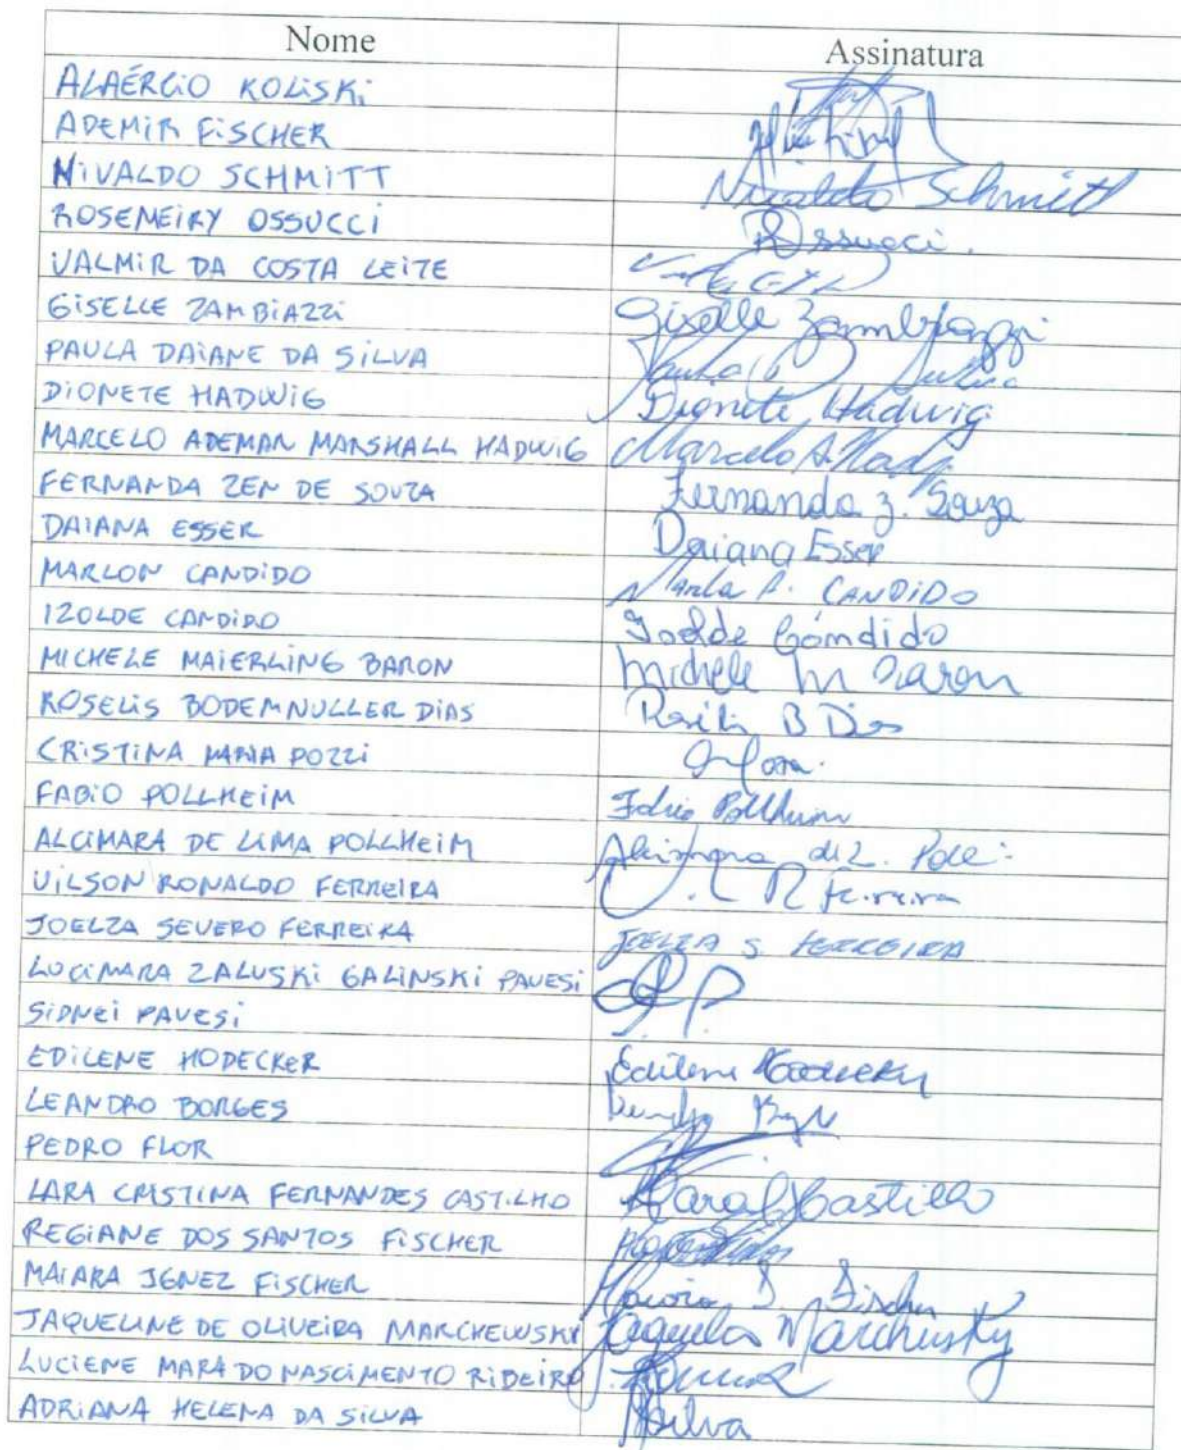 Nome Assinatura
ALAÉRCIO KOLISKI
ADEMIR FISCHER
NIVALDO SCHMITT Nivaldo Schmitt
ROSEMEIRY OSSUCCI ROssucci.
VALMIR DA COSTA LEITE
GISELLE ZAMBIAZZI Giselle Zambiazzi
PAULA DAIANE DA SILVA Paula D Silva
DIONETE HADWIG Dionete Hadwig
MARCELO ADEMAR MARSHALL HADWIG Marcelo A. Hadj
FERNANDA ZEN DE SOUZA Fernanda Z. Souza
DAIANA ESSER Daiana Esser
MARLON CANDIDO CANDIDO
IZOLDE CANDIDO Izolde Cândido
MICHELE MAIERLING BARON Michele M Baron
ROSELIS BODEMNULLER DIAS B Dias
CRISTINA MARIA POZZI
FABIO POLLHEIM Fabio Pollheim
ALCIMARA DE LIMA POLLHEIM Alcimara de L.
VILSON RONALDO FERREIRA R Ferreira
JOELZA SEVERO FERREIRA JOELZA S. FERREIRA
LUCIMARA ZALUSKI GALINSKI PAVESI
SIDNEI PAVESI
EDILENE HODECKER Edilene Hodecker
LEANDRO BORGES
PEDRO FLOR
LARA CRISTINA FERNANDES CASTILHO Castilho
REGIANE DOS SANTOS FISCHER
MAIARA IGNEZ FISCHER Maiara I. Fischer
JAQUELINE DE OLIVEIRA MARCHEWSKY Marchewsky
LUCIENE MARA DO NASCIMENTO RIBEIRO
ADRIANA HELENA DA SILVA ASilva